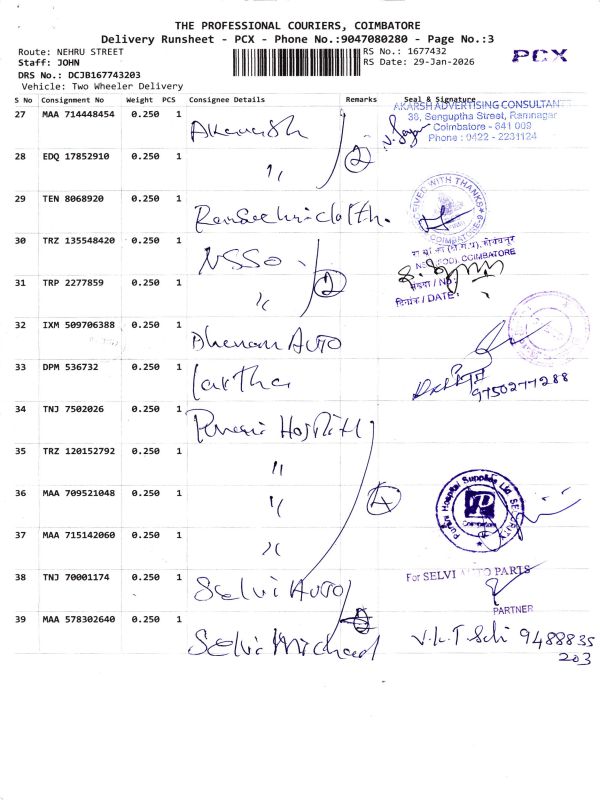 THE PROFESSIONAL COURIERS, COIMBATORE
Delivery Runsheet - PCX - Phone No.:9047080280 - Page No.:3
Route: NEHRU STREET
Staff: JOHN
DRS No.: DCJB167743203
Vehicle: Two Wheeler Delivery
RS No.: 1677432
RS Date: 29-Jan-2026
PCX
S No Consignment No Weight PCS Consignee Details Remarks Seal & Signature
27 MAA 714448454 0.250 1
AKARSH ADVERTISING CONSULTANT
38, Senguptha Street, Ramnagar
Coimbatore - 641 009
Phone : 0422 - 2231124
28 EDQ 17852910 0.250 1 " 2
29 TEN 8068920 0.250 1
RECEIVED WITH THANKS
COIMBATORE-9
30 TRZ 135548420 0.250 1 NSSO
COIMBATORE
31 TRP 2277859 0.250 1 " 2
दिनांक / DATE
32 IXM 509706388 0.250 1 AUTO
33 DPM 536732 0.250 1
9750277288
34 TNJ 7502026 0.250 1
35 TRZ 120152792 0.250 1 "
36 MAA 709521048 0.250 1 " 4
Hospital Supplies
Coimbatore
37 MAA 715142060 0.250 1 "
38 TNJ 70001174 0.250 1 Selvi AUTO
For SELVI AUTO PARTS
PARTNER
39 MAA 578302640 0.250 1 Selvi Michael
9488835
203